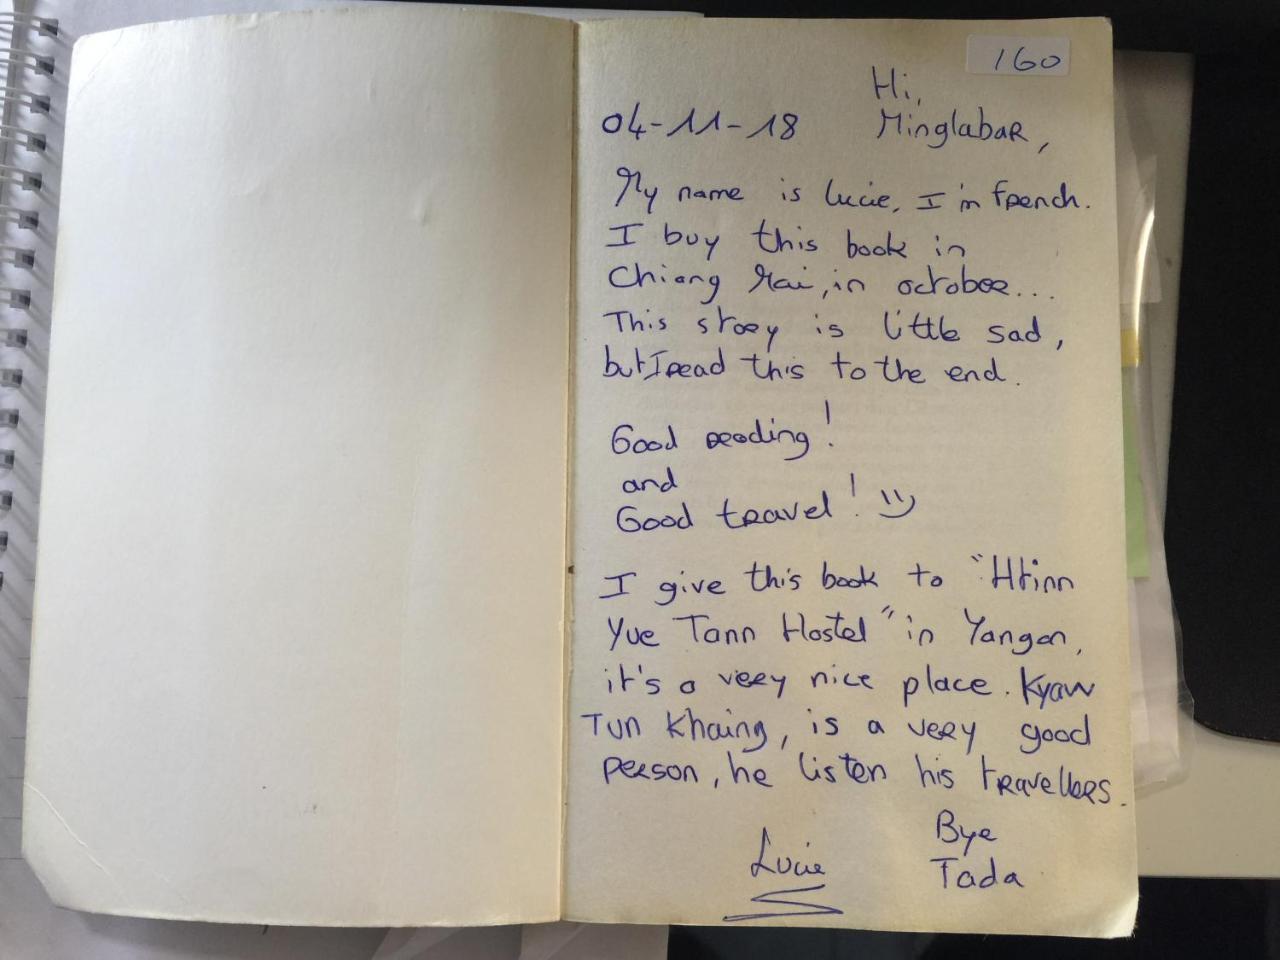 160
Hi,
04-11-18 Minglabar,
My name is Lucie, I'm french.
I buy this book in
Chiang Mai, in october...
This story is little sad,
but I read this to the end.
Good reading!
and
Good travel! :)
I give this book to "Htinn
Yue Tann Hostel" in Yangon,
it's a very nice place. Kyaw
Tun Khaing, is a very good
person, he listen his travellers.
Bye
Lucie Tada